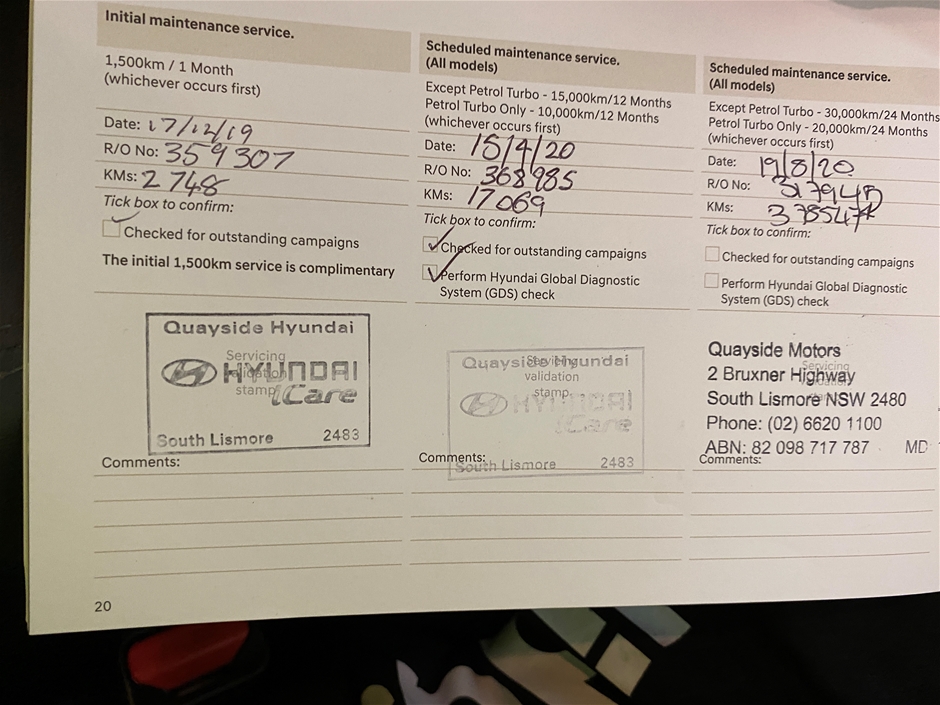 Initial maintenance service.
1,500km / 1 Month
(whichever occurs first)
Date: 17/12/19
R/O No: 359307
KMs: 2748
Tick box to confirm:
Checked for outstanding campaigns
The initial 1,500km service is complimentary
Quayside Hyundai
Servicing
validation
stamp
HYUNDAI
iCare
South Lismore 2483
Comments:
Scheduled maintenance service.
(All models)
Except Petrol Turbo - 15,000km/12 Months
Petrol Turbo Only - 10,000km/12 Months
(whichever occurs first)
Date: 15/4/20
R/O No: 368985
KMs: 17069
Tick box to confirm:
Checked for outstanding campaigns
Perform Hyundai Global Diagnostic
System (GDS) check
Quayside Hyundai
Servicing
validation
stamp
HYUNDAI
iCare
Comments:
South Lismore 2483
Scheduled maintenance service.
(All models)
Except Petrol Turbo - 30,000km/24 Months
Petrol Turbo Only - 20,000km/24 Months
(whichever occurs first)
Date: 19/8/20
R/O No:
KMs:
Tick box to confirm:
Checked for outstanding campaigns
Perform Hyundai Global Diagnostic
System (GDS) check
Quayside Motors
Servicing
2 Bruxner Highway
South Lismore NSW 2480
Phone: (02) 6620 1100
ABN: 82 098 717 787 MD
Comments:
20